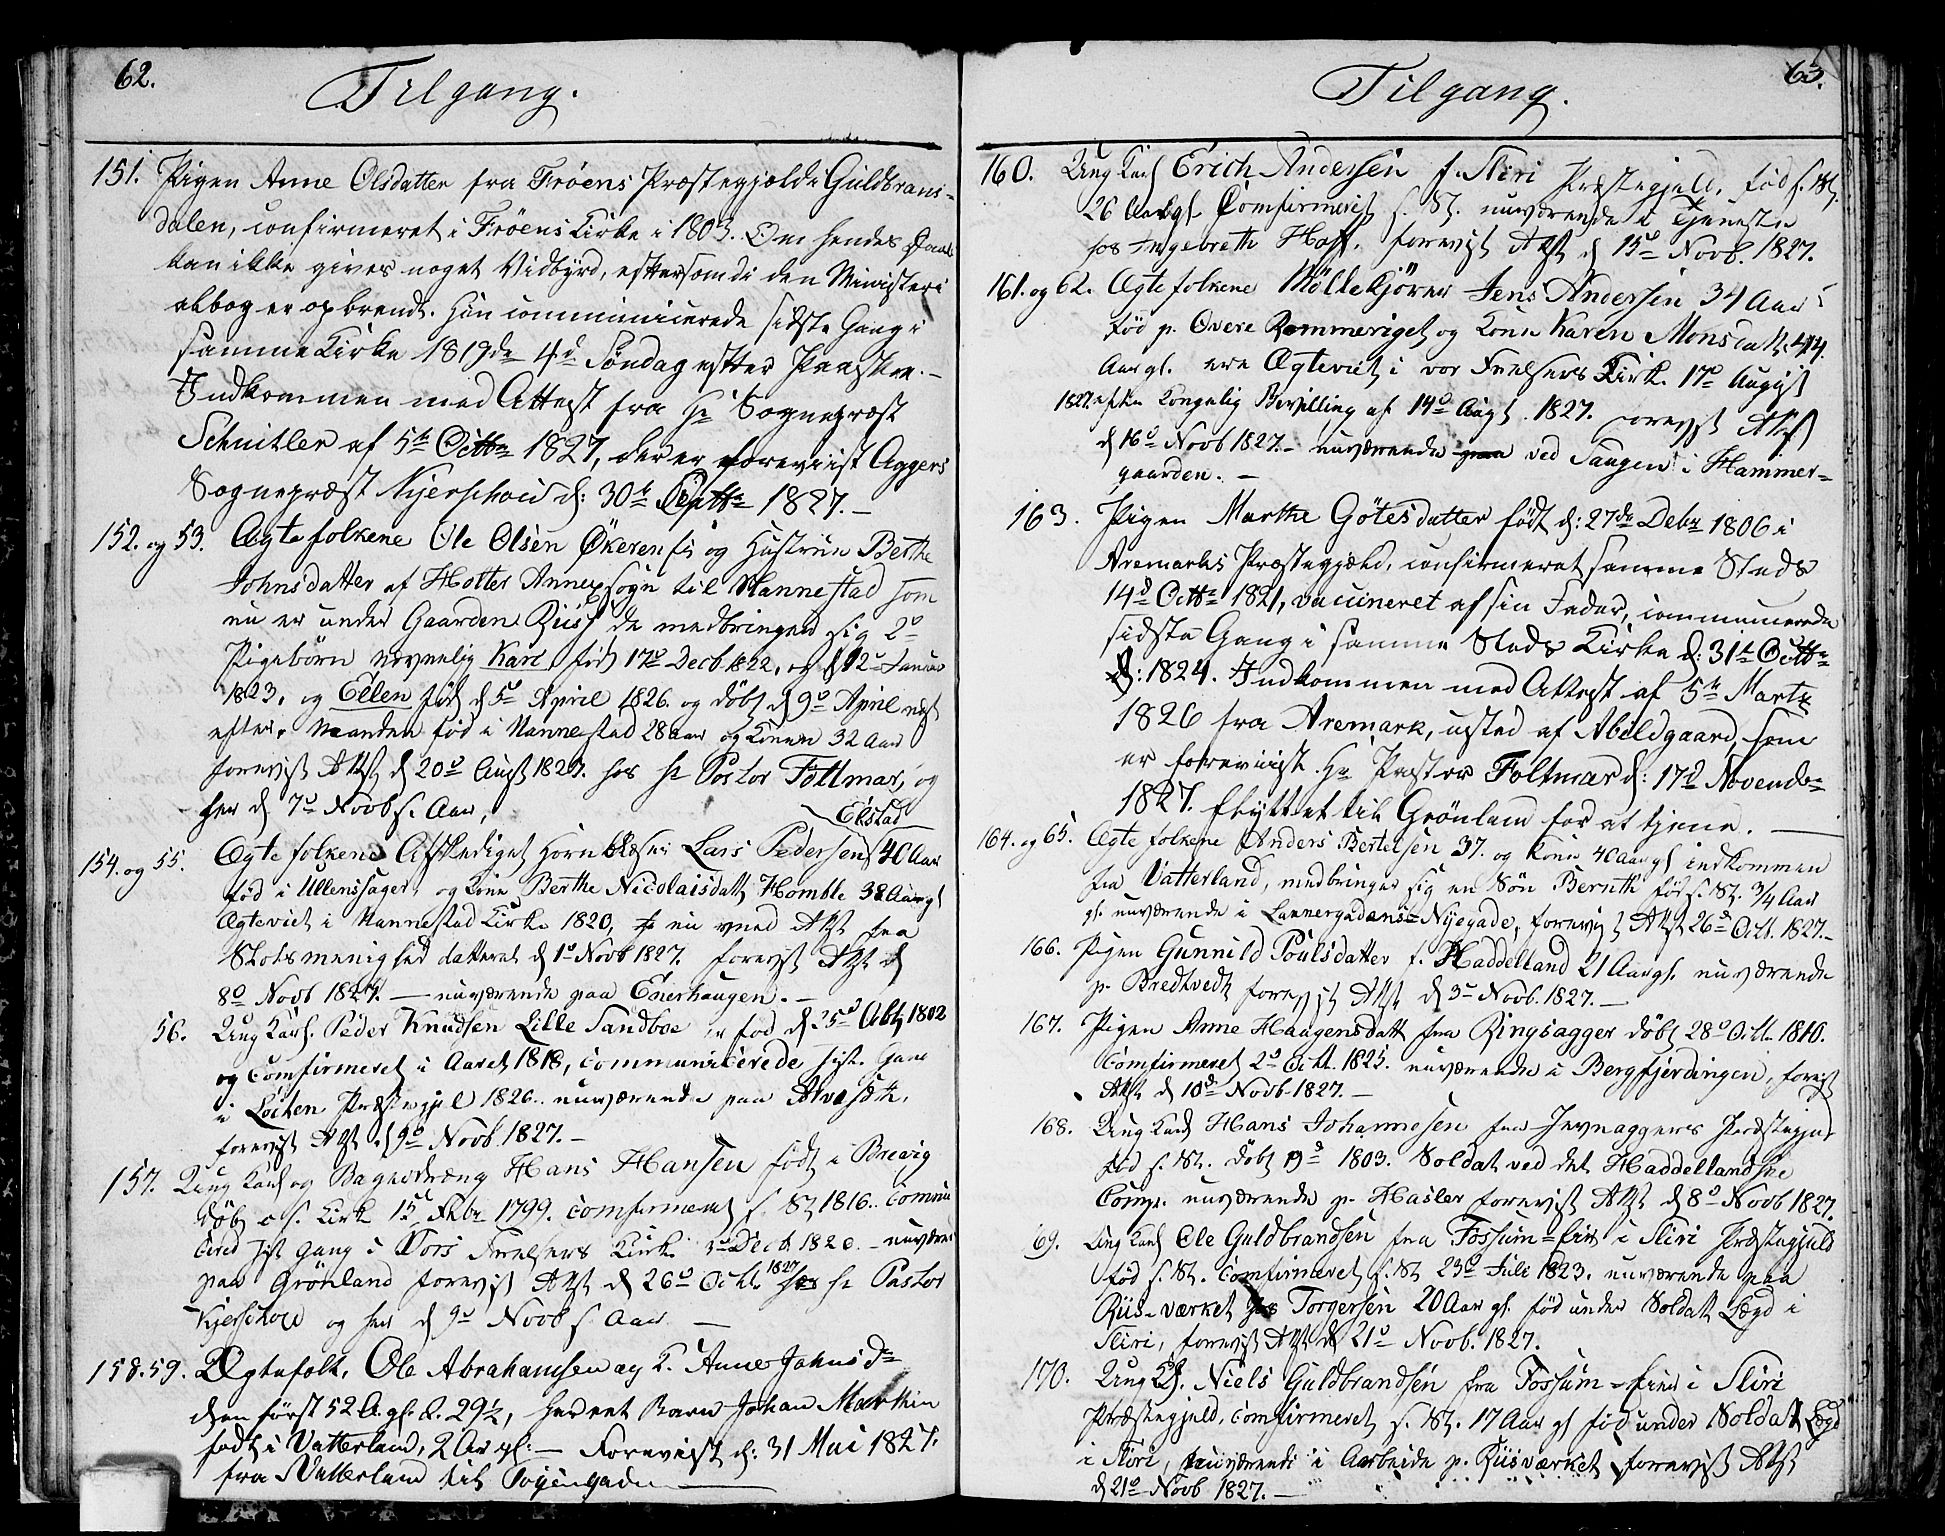 62.
Tilgang.
151. Pigen Anne Olsdatter fra Fröens Præstegjæld i Guldbrans-
dalen, confirmeret i Fröens Kirke i 1803. Om hendes
kan ikke gives noget Vidbyrd, eftersom di den Ministeri
albog er opbrendt. Hun communicerede sidste Gang i
samme Kirke 1819 4d Söndag efter Paaske. –
Indkommen med Attest fra Hr Sognepræst
Schnitler af 5te Octbr 1827, der er foreviist Aggers
Sognepræst Kjerschow d: 30te 1827. –
152. og 53. Ægtefolkene Ole Olsen Økeren og Hustrue Berthe
Johnsdatter af Holter Annexsogn til Nannestad som
nu er under Gaarden Riis de medbringer sig 2
Pigebörn navnlig Kari, föd 17d Decb 1822, og d 12 Januar
1823, og Ellen föd d 5d April 1826. og döbt d 9d April næst
efter. Manden föd i Nannestad 28 Aar og Konen 32 Aar
forevist Attst d 20d Augst 1827. hos Hr Pastor Foltmar, og
her d 7d Novb s. Aar,
154. og 55. Ægtefolkene Afskediget Hornblæser Lars Pedersen Elstad 40 Aar
föd i Ullensager, og Kone Berthe Nicolaisdatt Homble 38 Aar gl
Ægteviet i Nannestad Kirke 1820, nu med Attst fra
Slotsmenighed datteret d 1d Novb 1827. forevist Attst d
8d Novb 1827. – nuværende paa Enerhaugen. –
56. Ung Karl. Peder Knudsen Lille Sandboe er föd d 25d 1802
og Comfirmeret i Aaret 1818, Communicerede sist. Gang
i Löiten Præstegjel 1826. nuværende paa
forevist Attst d 9d Novb. 1827. –
157. Ung Karl og Bagersdræng Hans Hansen födt i Brevig
döbt s. Kirk 15d Febr 1799. Comfirmeret s. St 1816. Commu
cired sist Gang i Vors Frelsers Kirke Decb 1826. – nuværen
paa Grönland forevist Attst d 26d Octbr 1827 hos Hr Pastor
Kjerschow og her d 9d Novb s Aar –
158.59. Ægtefolk, Ole Abrahamsen og K. Anne Johnsdr
den först 52 A. gl. K. 29½, har et Barn Johan Martin
födt i Vatterland, 2 Aar gl: – Forevist d: 31 Mai 1827.
fra Vatterland til
63.
Tilgang.
160. Ung Karl Erich Andersen f. Slire Præstegjeld, föd s. St.
26 Aar gl. Comfirmeret s. St. nuværende i Tjeneste
hos Ingebreth Hoff. forevist Attst d 15d Novb. 1827.
161. og 62. Ægtefolkene Möllekjörer Jens Andersen 34 Aar
föd p. Övere Rommeriget og Kone Karen Monsdatt. 44.
Aar gl. ere Ægteviet i vor Frelsers Kirk. 17d August
1827. efter Kongelig Bevilling af 14d Augt. 1827. forevist Attst
d 16d Novb 1827. – nuværende ved Saugen i Hammer-
gaarden. –
163. Pigen Marthe Götesdatter födt d: 27de Debr 1806 i
Aremarks Præstegjæld, confirmeret samme Steds
14d Octbr 1821, vaccineret af sin Fader, communicerede
sidste Gang i samme Steds Kirke d: 31te Octbr
1824. Indkommen med Attest af 5te Marts
1826 fra Aremark, udsted af Abildgaard, som
er foreviist Hr Pastor Foltmar d: 17d Novembr
1827. flyttet til Grönland for at tjene. –
164. og 65. Ægtefolkene Anders Bertelsen 37. og Kone 40 Aar gl indkommen
fra Vatterland, medbringer sig en Sön Bernth föd s. St. ¾ Aar
gl. nuværende i Lannergadens-Nyegade, forevist Attst 26d Oct. 1827. –
166. Pigen Gunnild Poulsdatter f. Haddelland 21 Aar gl. nuværende
p. Bredtvedt forevist Attst d 3d Novb. 1827. –
167. Pigen Anne Haagensdatt fra Ringsagger döbt 28d Octb. 1810.
Comfirmeret 2d Octb. 1825. nuværende i Bergfjerdingen, forevist
Attst d 10d Novb 1827. –
168. Ung Karl Hans Johannesen fra Jevnaggers Præstegjel
föd s. St. döbt 9d 1803. Soldat ved det Haddellandske
Comp. nuværende p. Hasler forevist Attst d 8d Novb 1827.
69. Ung Karl Ole Guldbrandsen fra Fossum-Eie i Sliri Præstegjeld
föd s. St. Comfirmeret s. St 23d Juli 1823. nuværende paa
Riis-værket hos Torgersen 20 Aar gl. föd under Soldat Lægd i
Sliri, forevist Attst d 21d Novb. 1827.
170. Ung K. Niels Guldbrandsen fra Fossum-Eie i Sliri
Præstegjeld, Comfirmeret s. St. 17 Aar gl föd under Soldat Lægd
i Sliri, nuværende i Arbeide p. Riisværket forevist Attst
d 21d Novb 1827. –